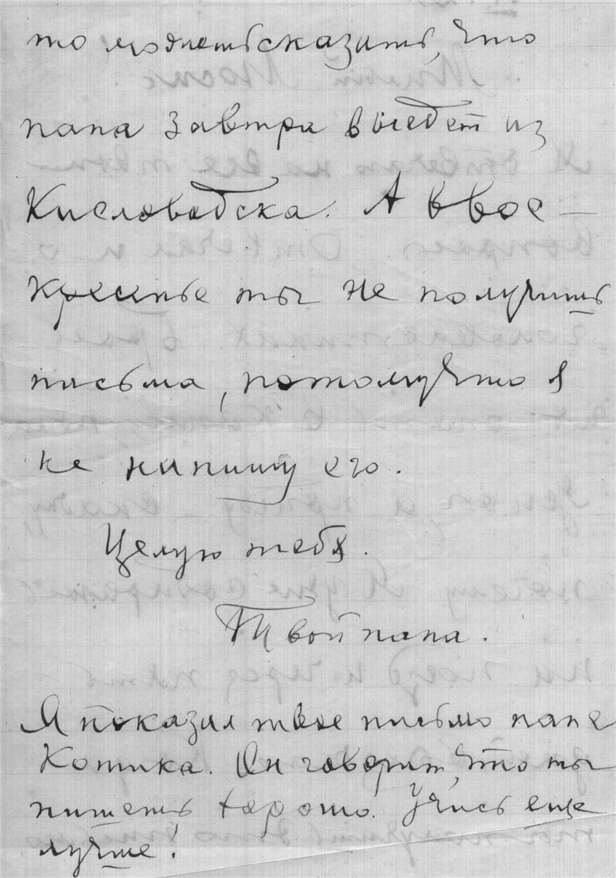 то можешь сказать, что
папа завтра выедет из
Кисловодска. А в вос–
кресенье ты не получишь
письма, потому что я
не напишу его.
Целую тебя.
Твой папа.
Я показал твое письмо папе
Котика. Он говорит, что ты
пишешь хорошо. Учись еще
лучше!